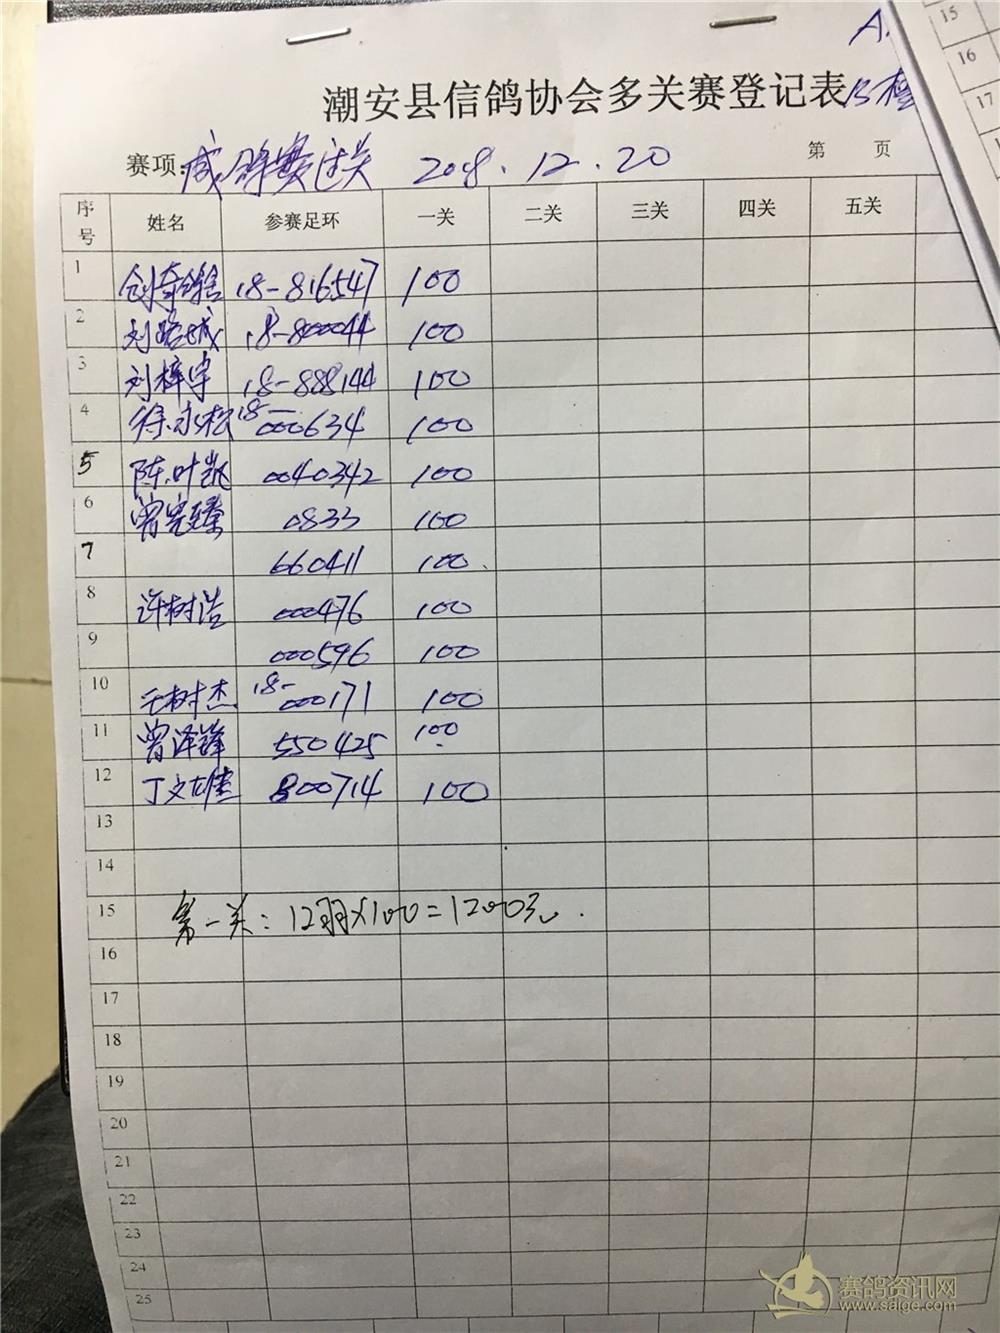 15
16
17
潮安县信鸽协会多关赛登记表 B 棚
赛项: 成绩赛过关 2018.12.20 第 页
序号 姓名 参赛足环 一关 二关 三关 四关 五关
1 创奇鸽舍 18-816547 100
2 18-800044 100
3 刘梓宇 18-888144 100
4 徐永松 18-000634 100
5 陈叶凯 0040342 100
6 曾宪臻 0833 100
7 660411 100
8 许树浩 000476 100
9 000596 100
10 王树杰 18-000171 100
11 曾泽锋 550425 100
12 丁文雄 800714 100
13
14
15 第一关: 12羽×100=1200元.
16
17
18
19
20
21
22
23
24
25
赛鸽资讯网
www.saige.com